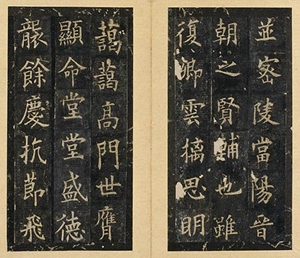 並密陵當陽晉
朝之賢輔也雖
復卿雲摛思明
藹藹高門世膺
顯命堂堂盛德
餘慶抗節飛